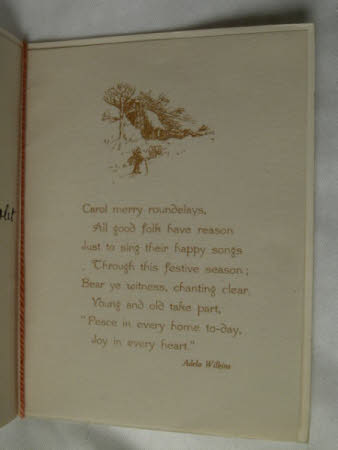 Carol merry roundelays,
All good folk have reason
Just to sing their happy songs
Through this festive season;
Bear ye witness, chanting clear,
Young and old take part,
"Peace in every home to-day,
Joy in every heart."
Adela Wilkins